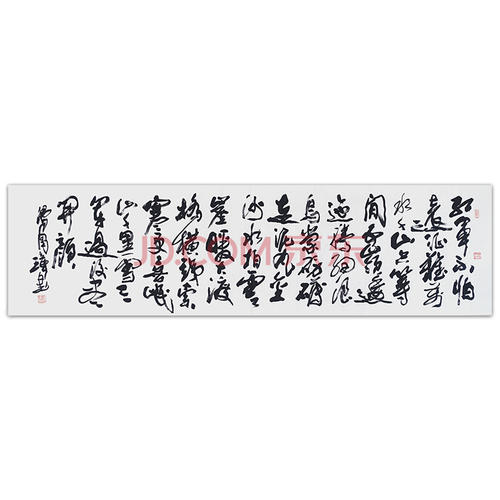 紅軍不怕
遠征難萬
水千山只等
閒五嶺逶
迤騰細浪
烏蒙磅礴
走泥丸金
沙水拍雲
崖暖大渡
橋横鐵索
寒更喜岷
山千里雪三
軍過後盡
開顏
JD.COM 京东